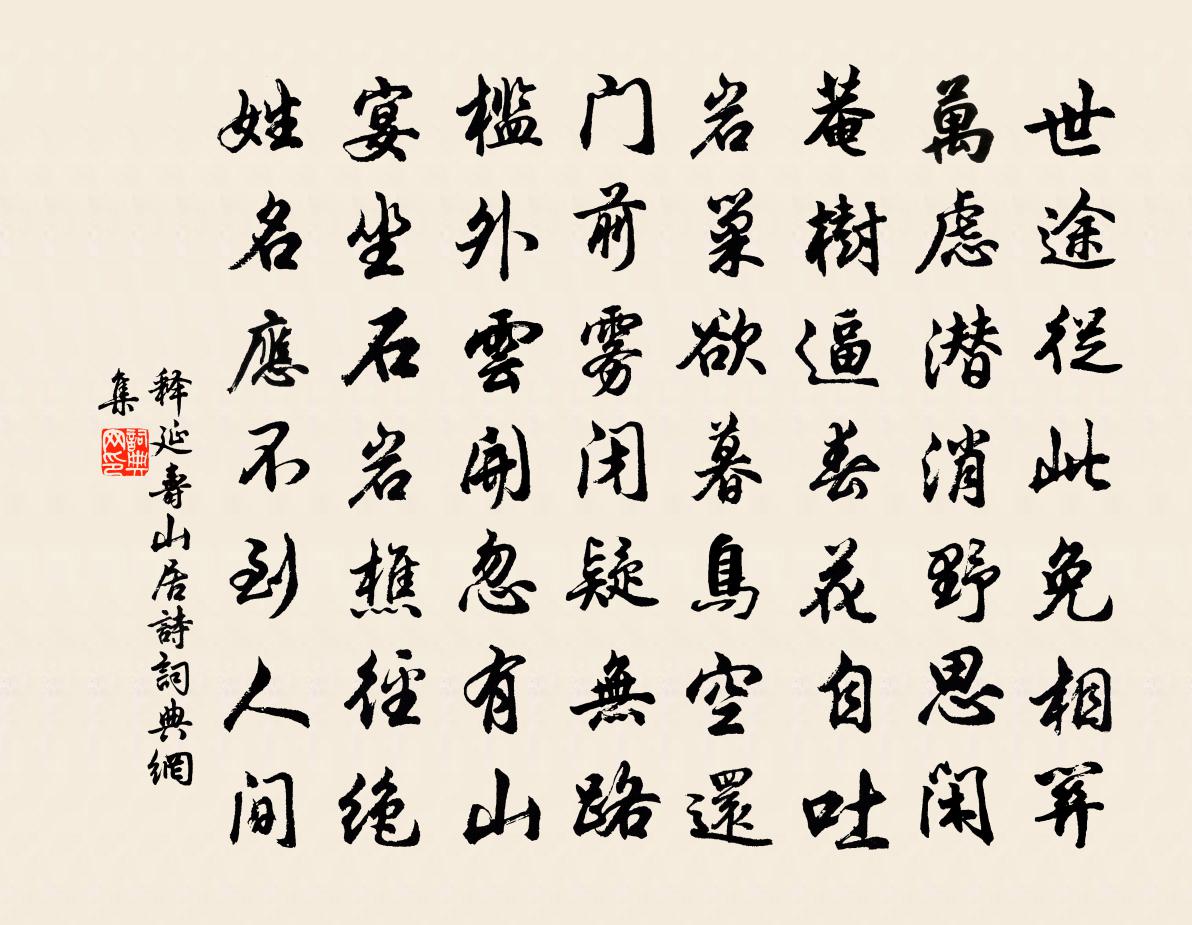 世途從此免相关
萬慮潜消野思閑
菴樹逼春花自吐
岩巢欲暮鳥空還
门前雾闭疑無路
檻外雲開忽有山
宴坐石岩樵徑绝
姓名應不到人間
释延壽山居詩詞典網
集
詞典网印